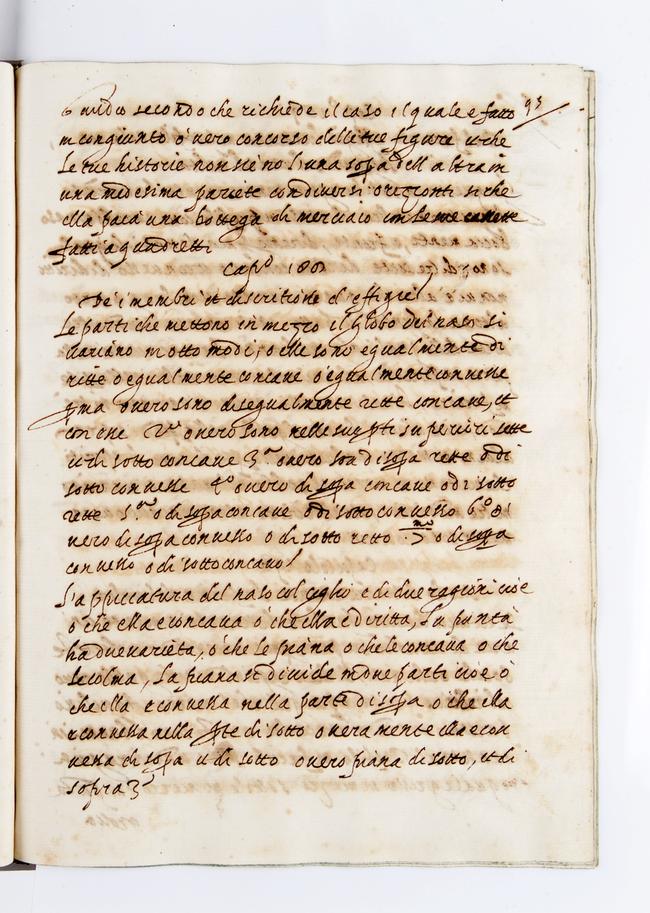 93
o nudo secondo che richiede il caso il quale e fatto
in congiunto ò vero concorso delle tue figure et che
le tue historie non sieno l'una sopa dell altra in
una medesima pariete con diversi orizzonti si che
ella paia una bottega di merciaio con le sue
fatti a quadretti
Cap.º 188
De i membri et discritione d'effigie
Le parti che mettono in mezzo il globo del naso si
variano in otto modi, o elle sono egualmente di
ritte o egualmente concave o egualmente convesse
pma overo sono disegualmente rette concave, et
con one overo sono nelle superiori rette
et di sotto concave 3ª overo son di sopa rette et di
sotto convesse 4º overo di sopa concave et di sotto
rette 5.º o di sopa concave et di sotto convesso 6º o
vero di sopa convesso o di sotto retto 7mo o di sopa
convesso o di sotto concavo
L'appiccatura del naso col ciglio e di due ragioni cioe
o che ella e concava o che ella e diritta, La punta
ha due varieta, o che le piana o che le concava o che
le colma, La piana si divide in due parti cioe o
che ella e convessa nella parte di sopa o che ella
e convessa nella pte di sotto overamente ella e con
vessa di sopa et di sotto overo piana di sotto, et di
sopra 3ª